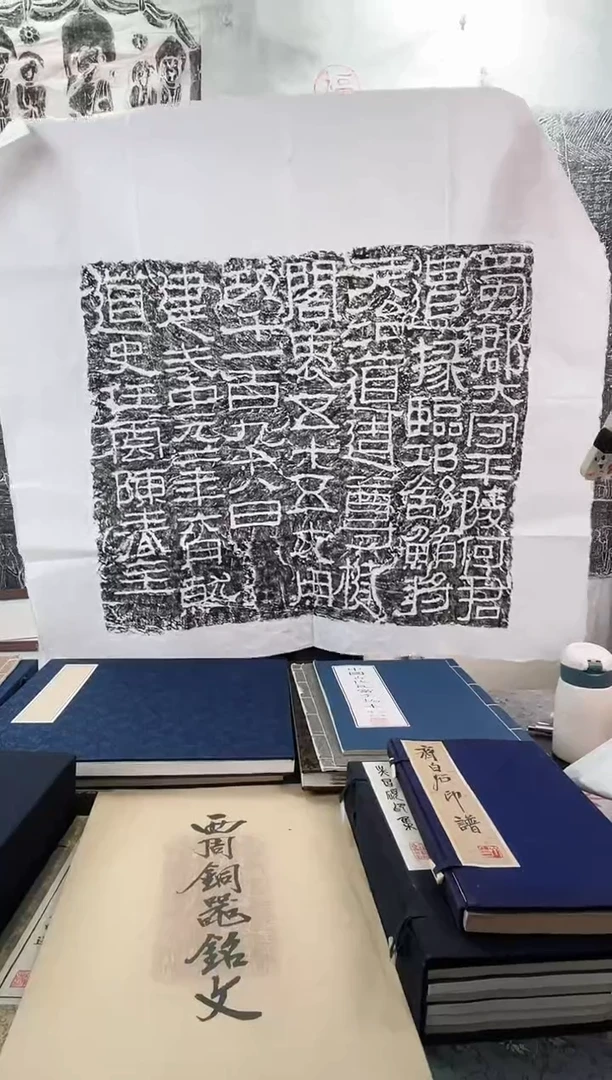 蜀郡大守平陵何君
遣掾臨邛舒鮪將
徒治道造尊楗
閣袤五十五丈用
功千一百九十八日
建武中元二年六月就
道史任雲陳春主
齊白石印譜
西周銅器銘文